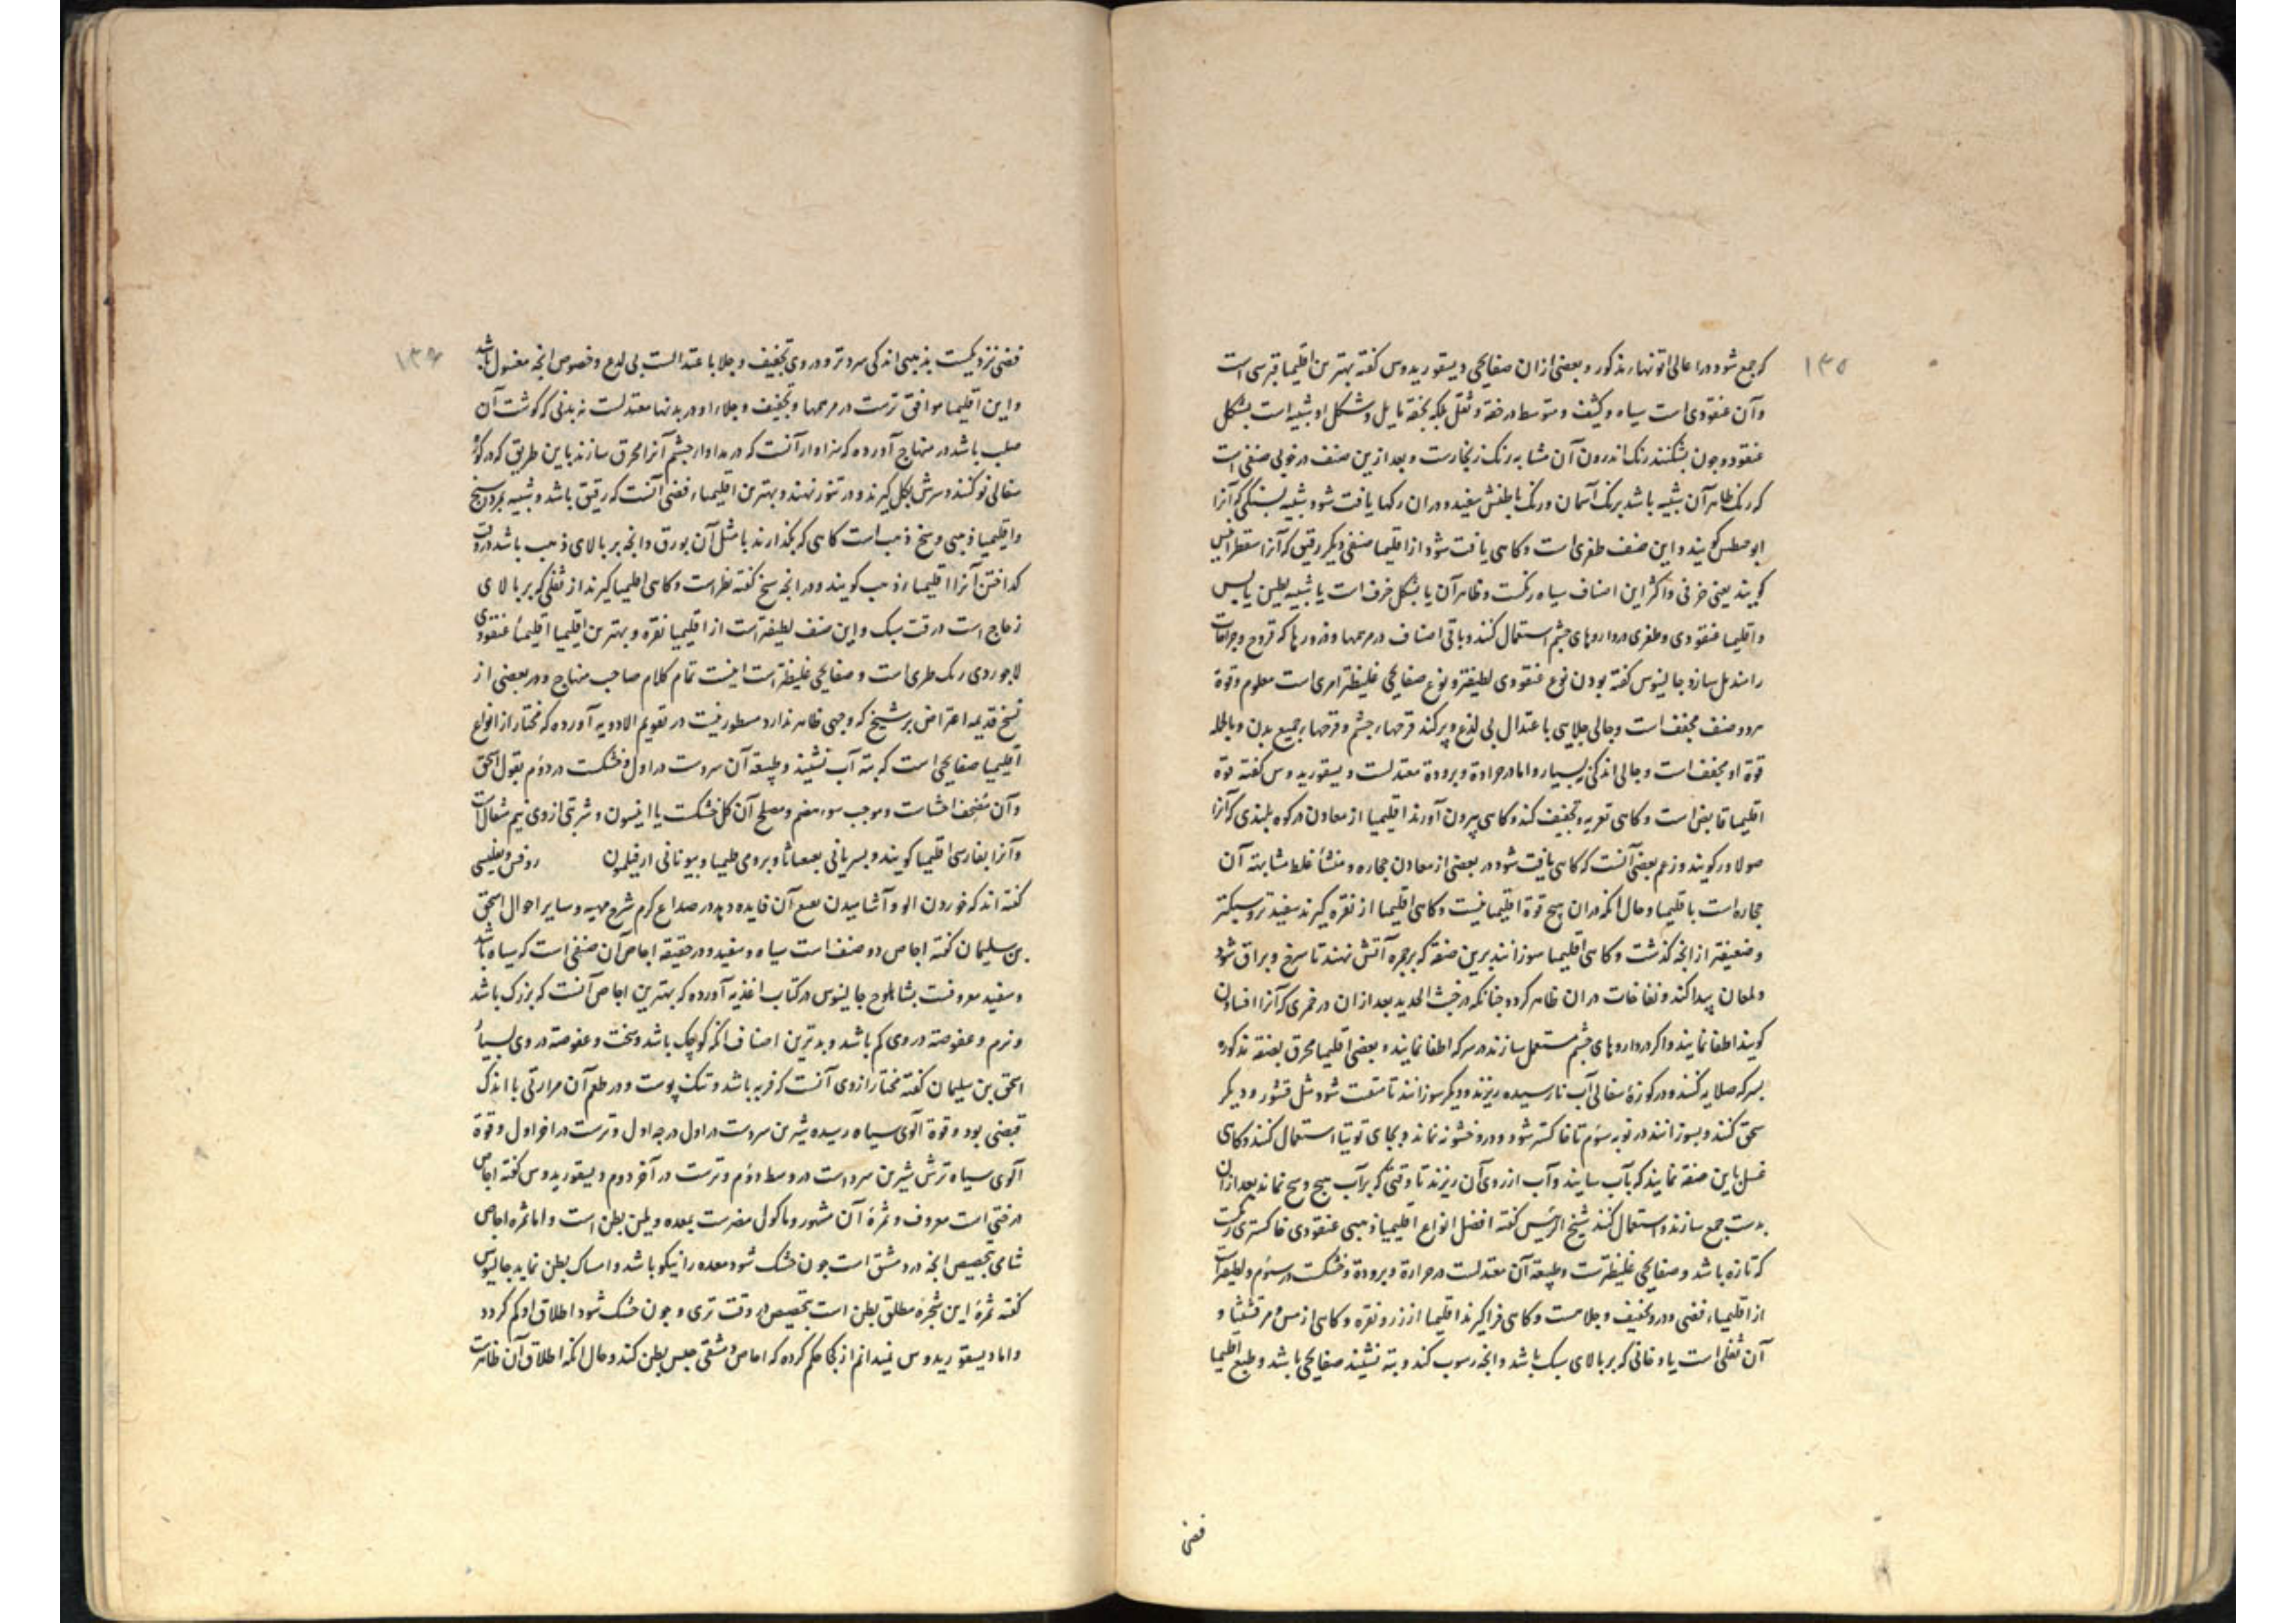 ۱۳۵
که جمع شود در اعالی اتونها مذکور و بعضی از ان صفایحی دیسقوریدوس کفته بهترین اقلیمیا قبرسی است
وآن عنقودی است سیاه وکثیف و متوسط در خفة وثقل بلکه بخفة مایل وشکل او شبیه است بشکل
عنقود وجون بشکنند رنک اندرون آن مشابه رنک زنجارست و بعد ازین صنف در خوبی صنفی است
که رنک ظاهر آن شبیه باشد برنک آسمان ورنک باطنش سفید و در ان رکها یافت شود شبیه بسنکی که آنرا
کویند و این صنف ظفری است وکاهی یافت شود از اقلیمیا صنفی دیکر رقیق که آنرا
کویند یعنی خزفی و اکثر این اصناف سیاه رنکست و ظاهر آن یا بشکل خزف است یا شبیه بطین یابس
و اقلیمیا عنقودی وظفری در داروهای چشم استعمال کنند وباقی اصناف در مرهمها وذرورها که قروح وجراحات
را مندمل سازد جالینوس کفته بودن نوع عنقودی لطیفتر و نوع صفایحی غلیظتر امری است معلوم وقوة
هر دو صنف مجفف است وجالی جلایی باعتدال بی لذع وپر کند قرحهاء چشم و قرحهاء جمیع بدن وبالجمله
قوة او مجفف است و جالی اندکی نه بسیار واما در حرارة وبرودة معتدلست دیسقوریدوس کفته قوة
اقلیمیا قابض است وکاهی تعریه و تجفیف کند وکاهی بیرون آورند اقلیمیا از معادن در کوه بلندی که آنرا
کویند وزعم بعضی آنست که کاهی یافت شود در بعضی از معادن حجاره ومنشأ غلط مشابهة آن
حجاره است باقلیمیا وحال انکه در ان هیچ قوة اقلیمیا نیست وکاهی اقلیمیا از نقره کیرند سفیدتر وسبکتر
وضعیفتر از انچه کذشت وکاهی اقلیمیا سوزانند برین صفة که بر جمره آتش نهند تا سرخ وبراق شود
ولمعان پیدا کند ونفاخات در ان ظاهر کردد چنانکه در خبث الحدید بعد از ان در خمری که آنرا
کویند اطفا نمایند و اکر در داروهای چشم مستعمل سازند در سرکه اطفا نمایند و بعضی اقلیمیا محرق بصفة مذکوره
بسرکه صلایه کنند ودر کوزهٔ سفالی آب نارسیده ریزند و دیکر سوزانند تا متفتت شود مثل قشور ودیکر
سحق کنند و بسوزانند در نوبه سوم تا خاکستر شود ودرو خشونه نماند وبجای توتیا استعمال کنند وکاهی
غسل باین صفة نمایند که بآب سایند وآب از روی آن ریزند تا وقتی که بر آب هیچ وسخ نماند بعد از ان
بدست جمع سازند و استعمال کنند شیخ الرئیس کفته افضل انواع اقلیمیا ذهبی عنقودی خاکستری رنکست
که تازه باشد و صفایحی غلیظترست وطبیعة آن معتدلست در حرارة وبرودة وخشکست در سوم ولطیفترست
از اقلیمیاء فضی ودرو تجفیف وجلاست وکاهی فرا کیرند اقلیمیا از زر و نقره وکاهی از مس ومرقشیثا و
آن ثفلی است یا دخانی که بر بالای سبک باشد وانچه رسوب کند وبته نشیند صفایحی باشد وطبع اقلیمیا
فضی
۱۳۶
فضی نزدیکست بذهبی اندکی سردتر و در وی تجفیف وجلا باعتدالست بی لدع وخصوص انچه مغسول باشد
و این اقلیمیا موافق ترست در مرهمها وتجفیف وجلاء او در بدنها معتدلست نه بدنی که کوشت آن
صلب باشد در منهاج آورده که سزاوار آنست که در مداوا چشم آنرا محرق سازند باین طریق که در کوزهٔ
سفالی نو کنند وسرش بکل کیرند و در تنور نهند و بهترین اقلیمیاء فضی آنست که رقیق باشد
واقلیمیا ذهبی وسخ ذهب است کاهی که بکذارند با مثل آن بورق وانچه بر بالای ذهب باشد در وقت
کداختن آنرا اقلیمیاء ذهب کویند ودر انچه شیخ کفته نظر است وکاهی اقلیمیا کیرند از ثفلی که بر بالای
زجاج است در وقت سبک و این صنف لطیفترست از اقلیمیا نقره وبهترین اقلیمیا اقلیمیاء عنقودی
لاجوردی رنک طری است و صفایحی غلیظترست اینست تمام کلام صاحب منهاج ودر بعضی از
نسخ قدیمه اعتراض بر شیخ که وجهی ظاهر ندارد مسطور نیست در تقویم الادویه آورده که مختار از انواع
اقلیمیا صفایحی است که بته آب نشیند وطبیعة آن سردست در اول وخشکست در دوم بقول اسحق
وآن احشاست وموجب سوء هضم ومصلح آن کل خشکست یا انیسون وشربتی از وی نیم مثقال است
وآنرا بفارسی اقلیمیا کویند وبسریانی وبرومی ویونانی روفس وبعضی
کفته اند که خوردن الو وآشامیدن آن فایده دهد در صداع کرم شرح مهیه وسایر احوال اسحق
بن سلیمان کفته اجاص دو صنف است سیاه وسفید ودر حقیقه اجاص آن صنفی است که سیاه باشد
وسفید معروفست بشاهلوج جالینوس در کتاب اغذیه آورده که بهترین اجاص آنست که بزرک باشد
ونرم وعفوصة در وی کم باشد وبدترین اصناف انکه کوچک باشد وسخت وعفوصة در وی بسیار
اسحق بن سلیمان کفته مختار از وی آنست که فربه باشد وتنک پوست ودر طعم آن مرارتی با اندک
قبضی بود وقوة آلوی سیاه رسیده شیرین سردست در اول درجه اول وترست در آخر اول وقوة
آلوی سیاه ترش شیرین سرد است در وسط دوم وترست در آخر دوم دیسقوریدوس کفته اجاص
درختی است معروف وثمرهٔ آن مشهور وماکول مضرست بمعده وملین بطن است واما ثمره اجاص
شامی بتخصیص انچه در دمشق است چون خشک شود معده را نیکو باشد وامساک بطن نماید جالینوس
کفته ثمرهٔ این شجره مطلق بطن است بتخصیص در وقت تری و جون خشک شود اطلاق او کم کردد
واما دیسقوریدوس نمیدانم از کجا حکم کرده که اجاص دمشقی حبس بطن کند وحال انکه اطلاق آن ظاهرست